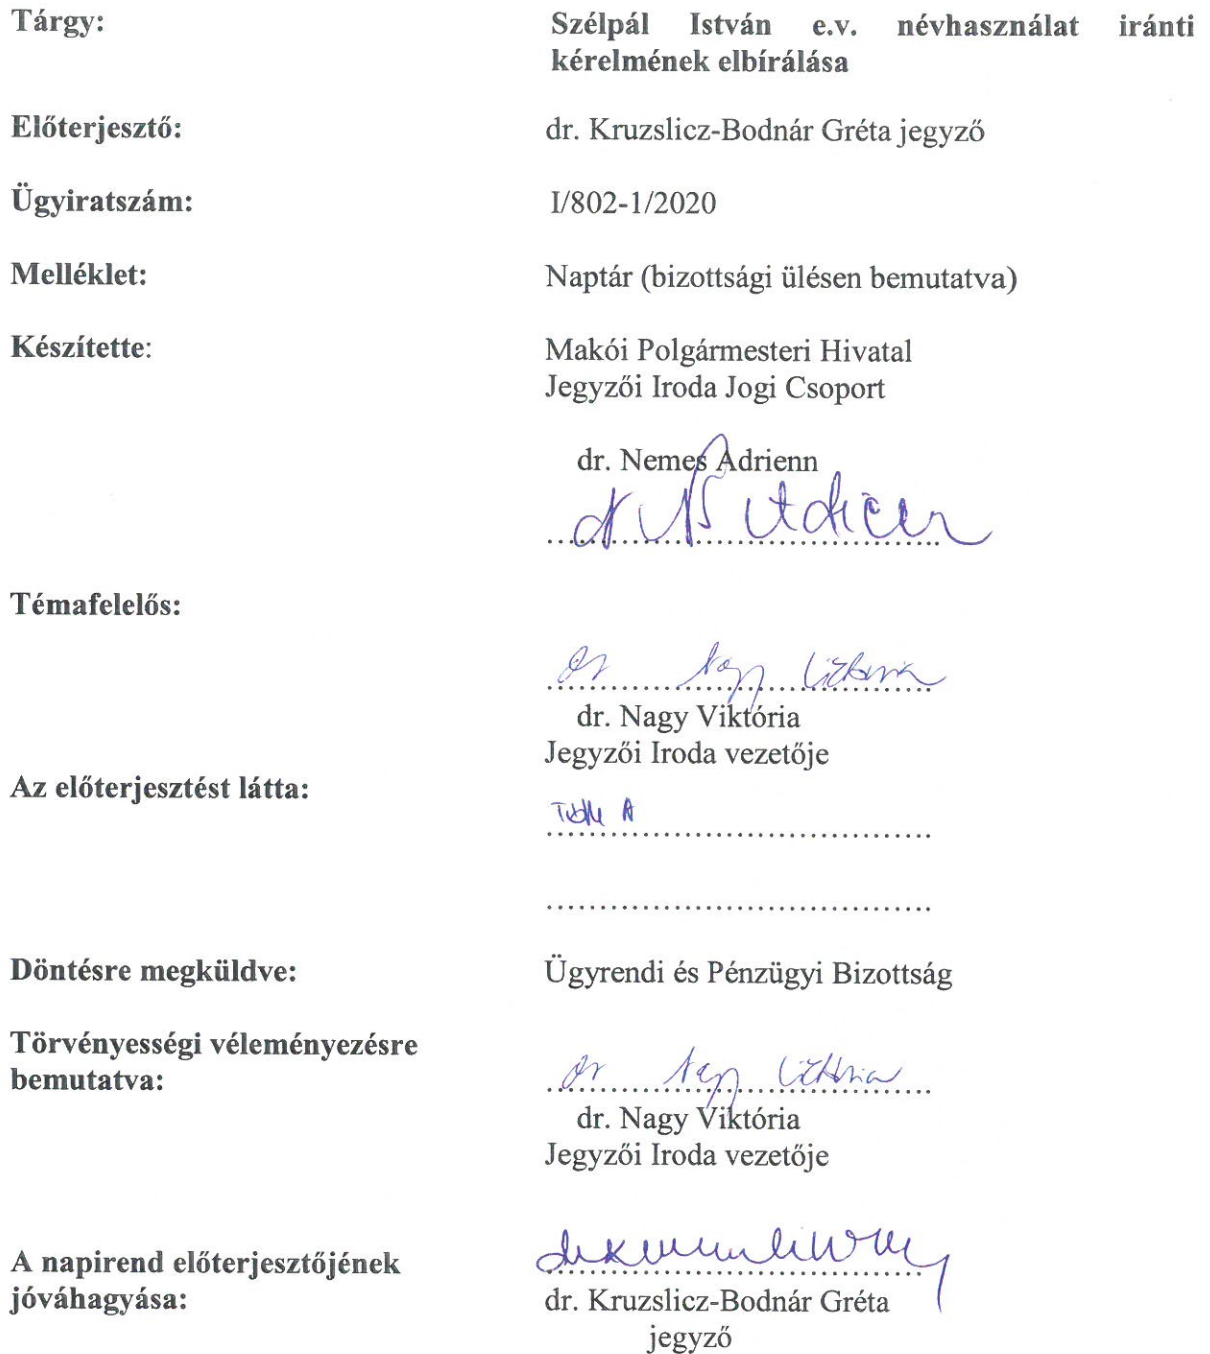 Tárgy: Szélpál István e.v. névhasználat iránti
kérelmének elbírálása
Előterjesztő: dr. Kruzslicz-Bodnár Gréta jegyző
Ügyiratszám: I/802-1/2020
Melléklet: Naptár (bizottsági ülésen bemutatva)
Készítette: Makói Polgármesteri Hivatal
Jegyzői Iroda Jogi Csoport
dr. Nemes Adrienn
Témafelelős:
dr Nagy Viktória
dr. Nagy Viktória
Jegyzői Iroda vezetője
Az előterjesztést látta:
Döntésre megküldve: Ügyrendi és Pénzügyi Bizottság
Törvényességi véleményezésre
bemutatva:
dr Nagy Viktória
dr. Nagy Viktória
Jegyzői Iroda vezetője
A napirend előterjesztőjének
jóváhagyása:
dr. Kruzslicz-Bodnár Gréta
jegyző